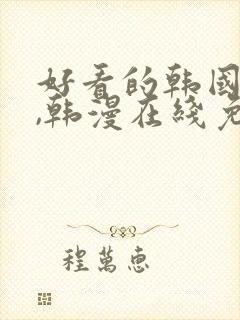 好看的韩國
,韩漫在线免
程萬惠